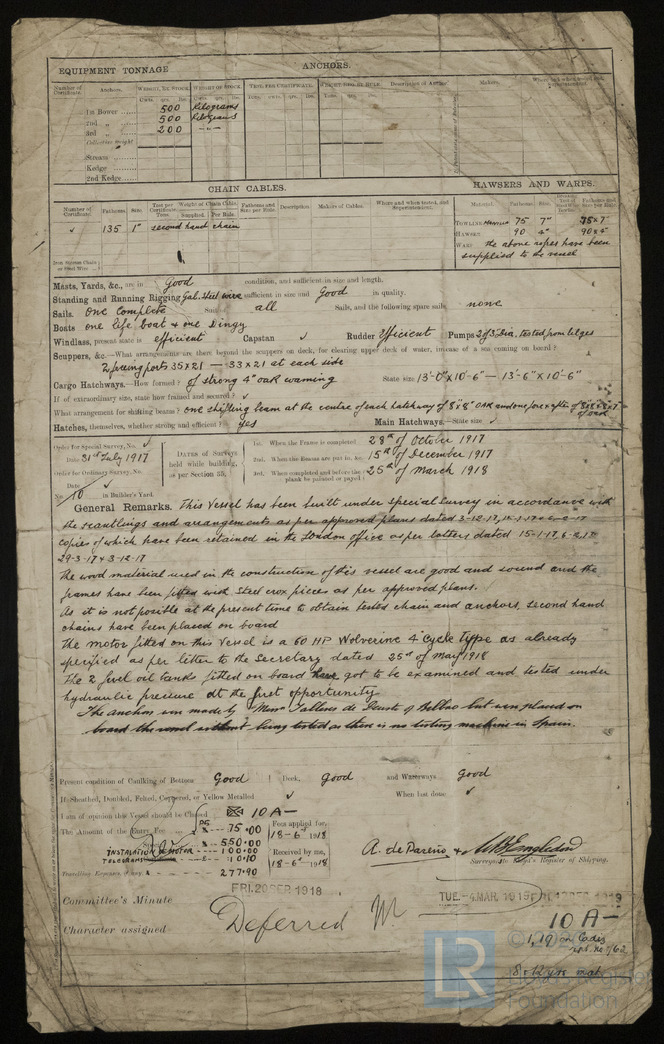 EQUIPMENT TONNAGE
ANCHORS.
Number of Certificate. Anchors. WEIGHT, EX STOCK. WEIGHT OF STOCK. TEST, PER CERTIFICATE. WEIGHT, REQ. BY RULE. Description of Anchor. Makers.
Cwts. qrs. lbs.
1st Bower 500 kilograms
2nd „ 500 kilograms
3rd „ 200 —„—
Collective weight
Stream
Kedge
2nd Kedge
CHAIN CABLES.
HAWSERS AND WARPS.
Number of Certificate. Fathoms. Size. Test per Certificate. Tons. Weight of Chain Cable. Supplied. Per Rule. Fathoms and Size per Rule. Description. Makers of Cables. Where and when tested, and Superintendent.
Material. Fathoms. Size. Fathoms and Size per Rule.
✓ 135 1" second hand chain
TOWLINE 75 7" 75 x 7"
HAWSER 90 4" 90 x 4"
WARP the above ropes have been
supplied to the vessel
Masts, Yards, &c., are in good condition, and sufficient in size and length.
Standing and Running Rigging Gal. Steel wire sufficient in size and Good in quality.
Sails. One complete Suit all Sails, and the following spare sails none
Boats one life boat & one Dingy
Windlass, present state is efficient Capstan ✓ Rudder Efficient Pumps 2 of 3" Dia. tested from bilges
Scuppers, &c.—What arrangements are there beyond the scuppers on deck, for clearing upper deck of water, in case of a sea coming on board?
2 freeing ports 35 x 21 — 33 x 21 at each side
Cargo Hatchways.—How formed? of strong 4" oak coaming State size 13'-0" x 10'-6" — 13'-6" x 10'-6"
If of extraordinary size, state how framed and secured? ✓
What arrangement for shifting beams? one shifting beam at the centre of each hatchway of 8" x 8" OAK and one fore & after of 8 x 8 x 7"
of oak
Hatches, themselves, whether strong and efficient? yes Main Hatchways.—State size
Order for Special Survey, No. ✓
Date 31st July 1917
Order for Ordinary Survey, No.
Date ✓
No. 10 in Builder's Yard.
DATES of Surveys held while building, as per Section 35.
1st. When the Frame is completed 28th of October 1917
2nd. When the Beams are put in, &c. 15th of December 1917
3rd. When completed and before the plank be painted or payed 25th of March 1918
General Remarks. This Vessel has been built under special Survey in accordance with
the scantlings and arrangements as per approved plans dated 3-12-17,
copies of which have been retained in the London office as per letters dated 15-1-17, 6-2-17
29-3-17 & 3-12-17
The wood material used in the construction of this vessel are good and sound and the
frames have been fitted with Steel crox pieces as per approved plans.
As it is not posible at the present time to obtain tested chain and anchors, second hand
chains have been placed on board
The motor fitted on this Vessel is a 60 HP Wolverine 4 Cycle type as already
specified as per letter to the Secretary dated 25th of May 1918
The 2 fuel oil tanks fitted on board have got to be examined and tested under
hydraulic presure at the first opportunity
The anchor were made by Messrs Talleres de Deusto of Bilbao but were placed on
board the vessel without being tested as there is no testing machine in Spain.
Present condition of Caulking of Bottom Good Deck, Good and Waterways Good
If Sheathed, Doubled, Felted, Coppered, or Yellow Metalled ✓ When last done ✓
I am of opinion this Vessel should be Classed 10 A—
The Amount of the Entry Fee PS 75.00 Fees applied for, 18-6-1918
550.00
INSTALATION of MOTOR 100.00 Received by me,
TELEGRAMS 10.10 18-6-1918
Travelling Expenses, if any, 277.90
A. de Pareño +
Surveyor to Lloyd's Register of Shipping.
FRI. 20 SEP 1918
TUE. 4 MAR. 1919
Committee's Minute
Deferred
Character assigned
10 A—
1,19 Cadiz
rpt. no 762
8 & 12 yrs mat
LR
Foundation